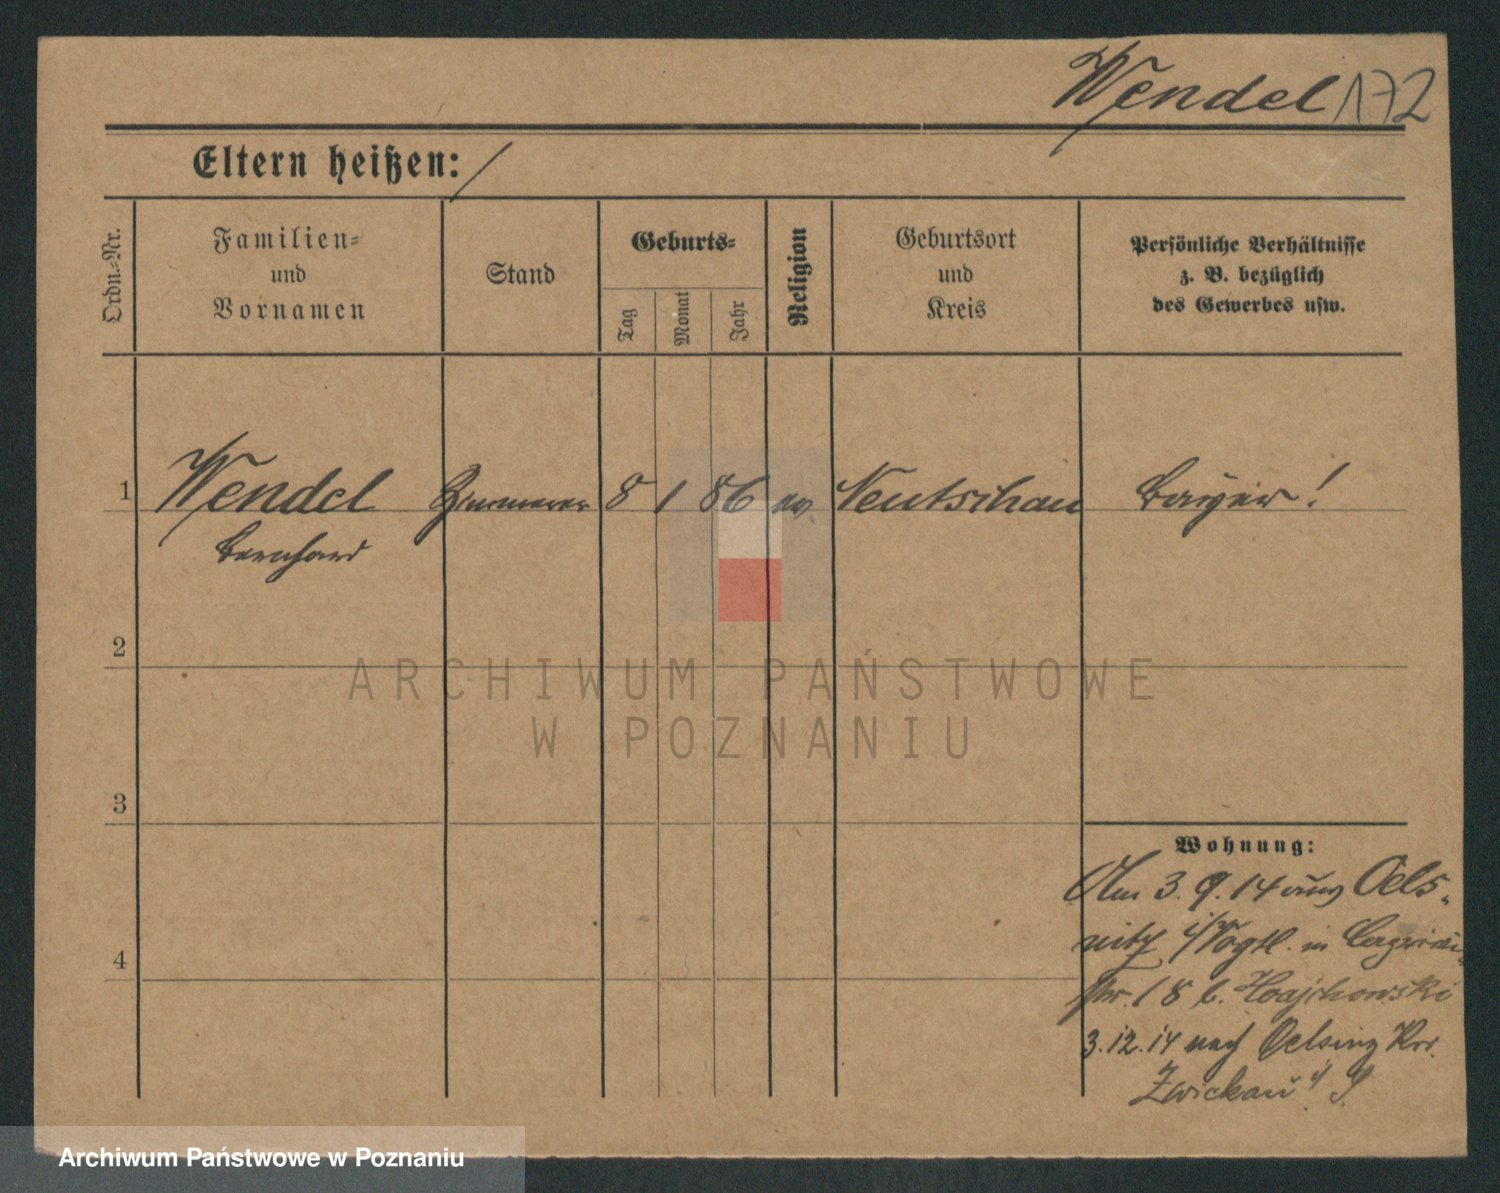 Wendel 172
Eltern heißen: /
Ordn.=Nr.
Familien=
und
Vornamen
Stand
Geburts=
Tag
Monat
Jahr
Religion
Geburtsort
und
Kreis
Persönliche Verhältnisse
z. B. bezüglich
des Gewerbes usw.
1 Wendel Zimmerer 8 1 86 ev. Neutschau Bayer!
Bernhard
2
ARCHIWUM PAŃSTWOWE
W POZNANIU
3
Wohnung:
Am 3. 9. 14 aus Oels-
nitz i/Vogtl. in
4
18 b.
3.12.14 nach Oelsnitz Kr.
Zwickau i/ S.
Archiwum Państwowe w Poznaniu